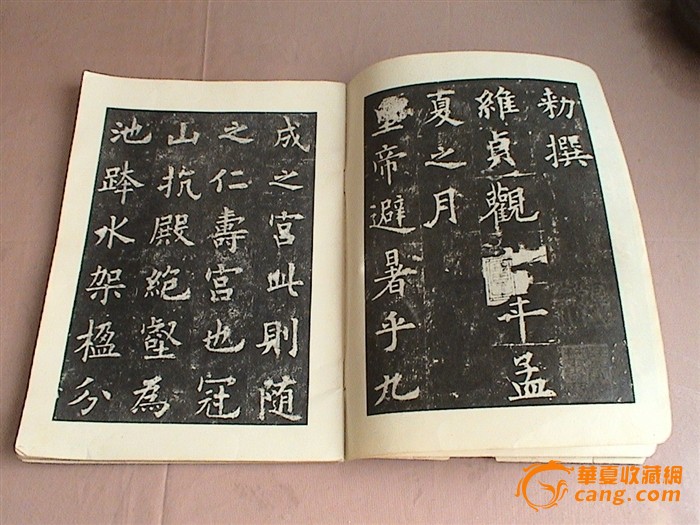 勑撰
維貞觀年孟
夏之月
皇帝避暑乎九
成之宮此則随
之仁壽宮也冠
山抗殿絕壑為
池跨水架楹分
華夏收藏網
cang.com